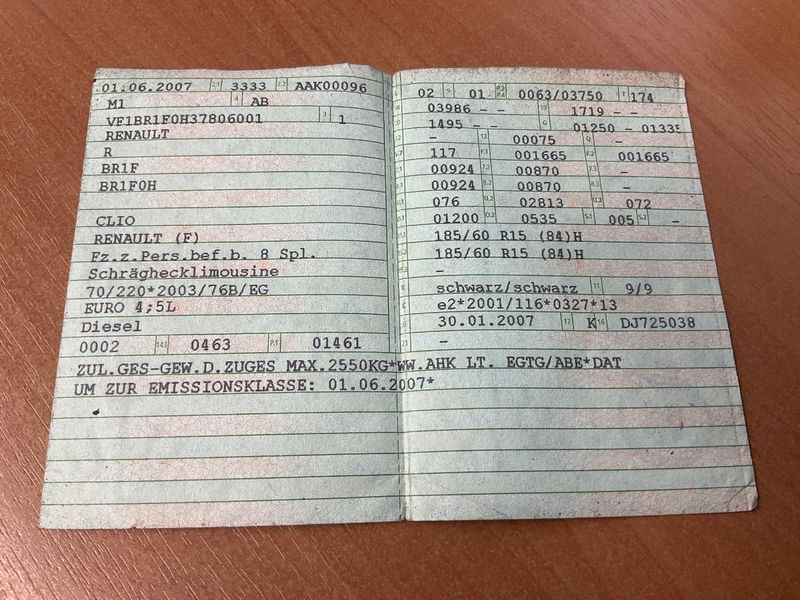 01.06.2007 2.1 3333 2.2 AAK00096
M1 4 AB
VF1BR1F0H37806001 3 1
RENAULT
R
BR1F
BR1F0H
CLIO
RENAULT (F)
Fz.z.Pers.bef.b. 8 Spl.
Schräghecklimousine
70/220*2003/76B/EG
EURO 4;5L
Diesel
0002 14.1 0463 P.1 01461
02 9 01 P.2 P.4 0063/03750 T 174
03986 - - 19 1719 - -
1495 - - G 01250 - 01335
- 13 00075 Q -
117 F.1 001665 F.2 001665
00924 7.2 00870 -
00924 8.2 00870 8.3 -
076 U.2 02813 U.3 072
01200 O.2 0535 S.1 005 S.2 -
185/60 R15 (84)H
185/60 R15 (84)H
-
schwarz/schwarz 11 9/9
e2*2001/116*0327*13
30.01.2007 17 K 16 DJ725038
-
ZUL.GES-GEW.D.ZUGES MAX.2550KG*WW.AHK LT. EGTG/ABE*DAT
UM ZUR EMISSIONSKLASSE: 01.06.2007*